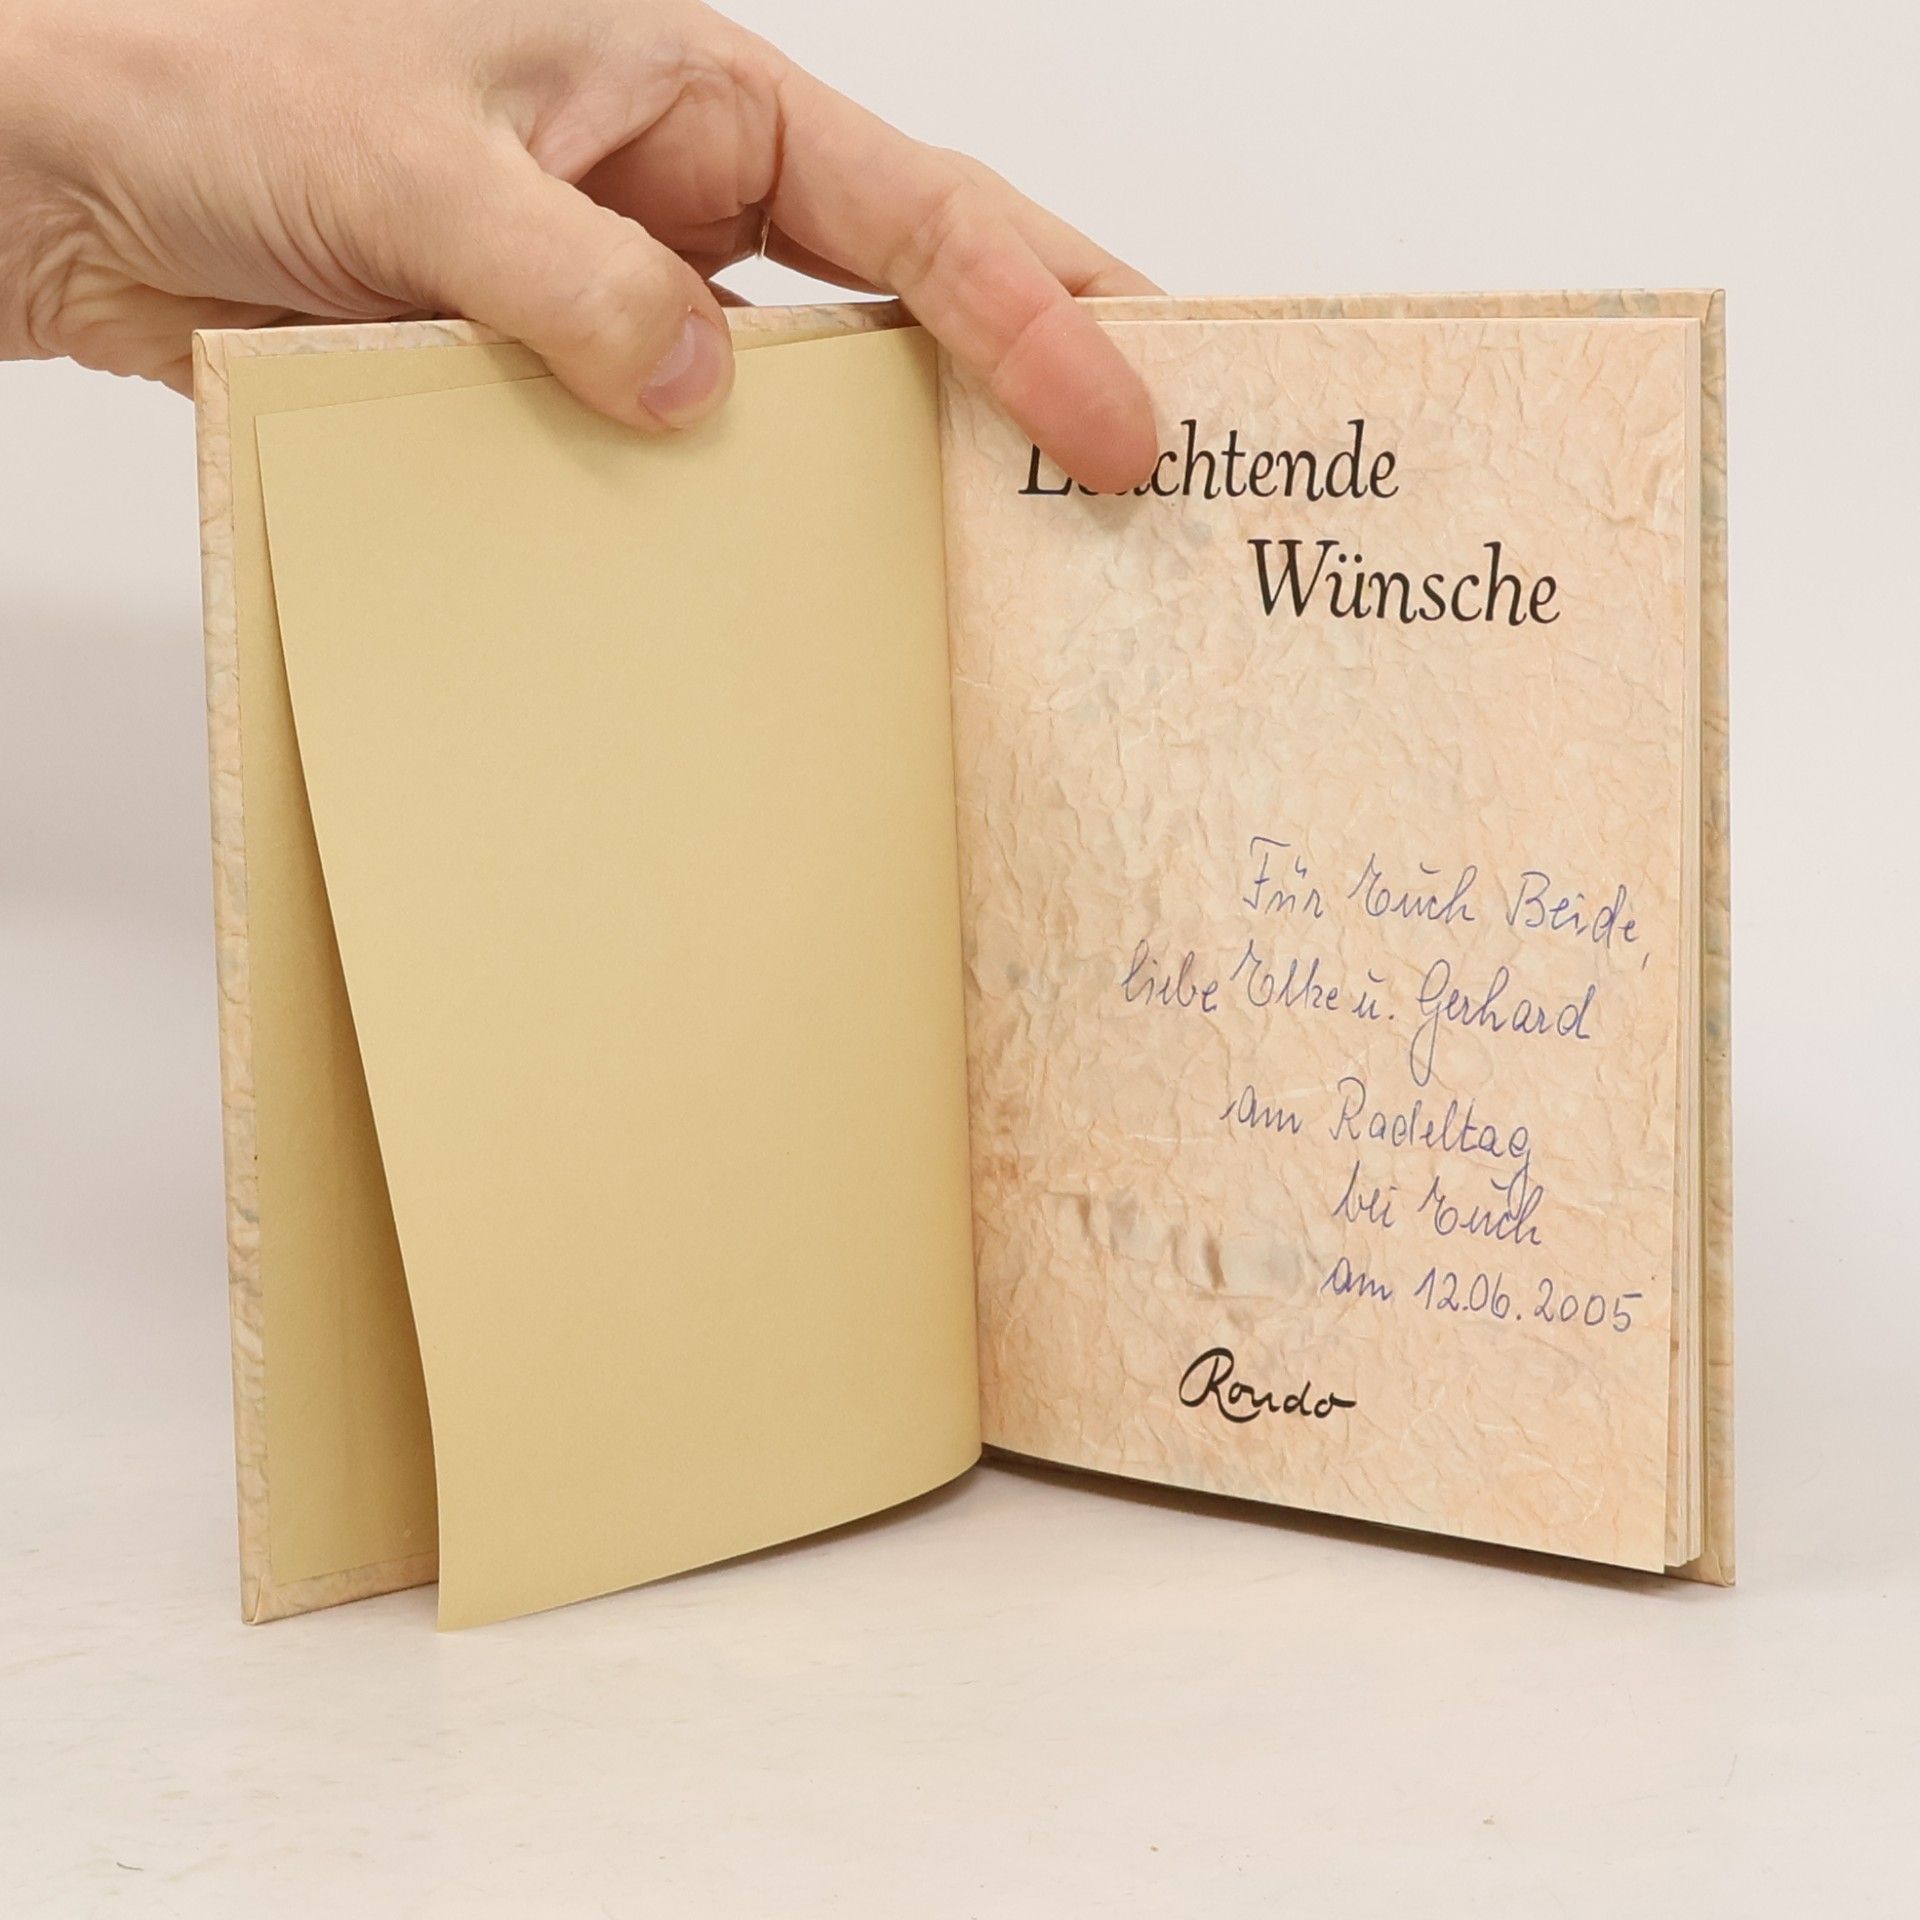 Leuchtende
Wünsche
Für Euch Beide,
liebe Elke u. Gerhard
am Radeltag
bei Euch
am 12.06.2005
Rondo